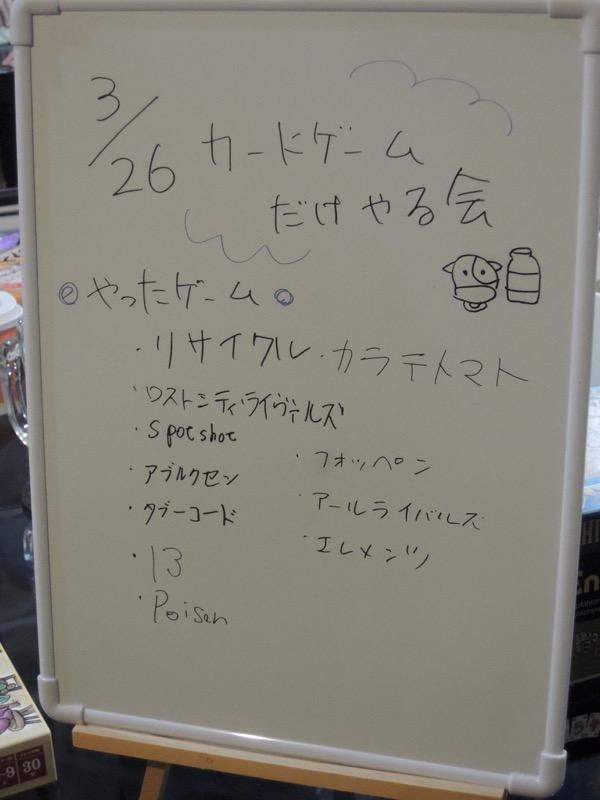 3/26 カードゲーム
だけやる会
◎やったゲーム◎
・リサイクル ・カラテトマト
・ロストシティライヴァルズ
・Spotshot
・アブルクセン ・フォッペン
・タブーコード ・アールライバルズ
・13 ・エレメンツ
・Poison
-9 30